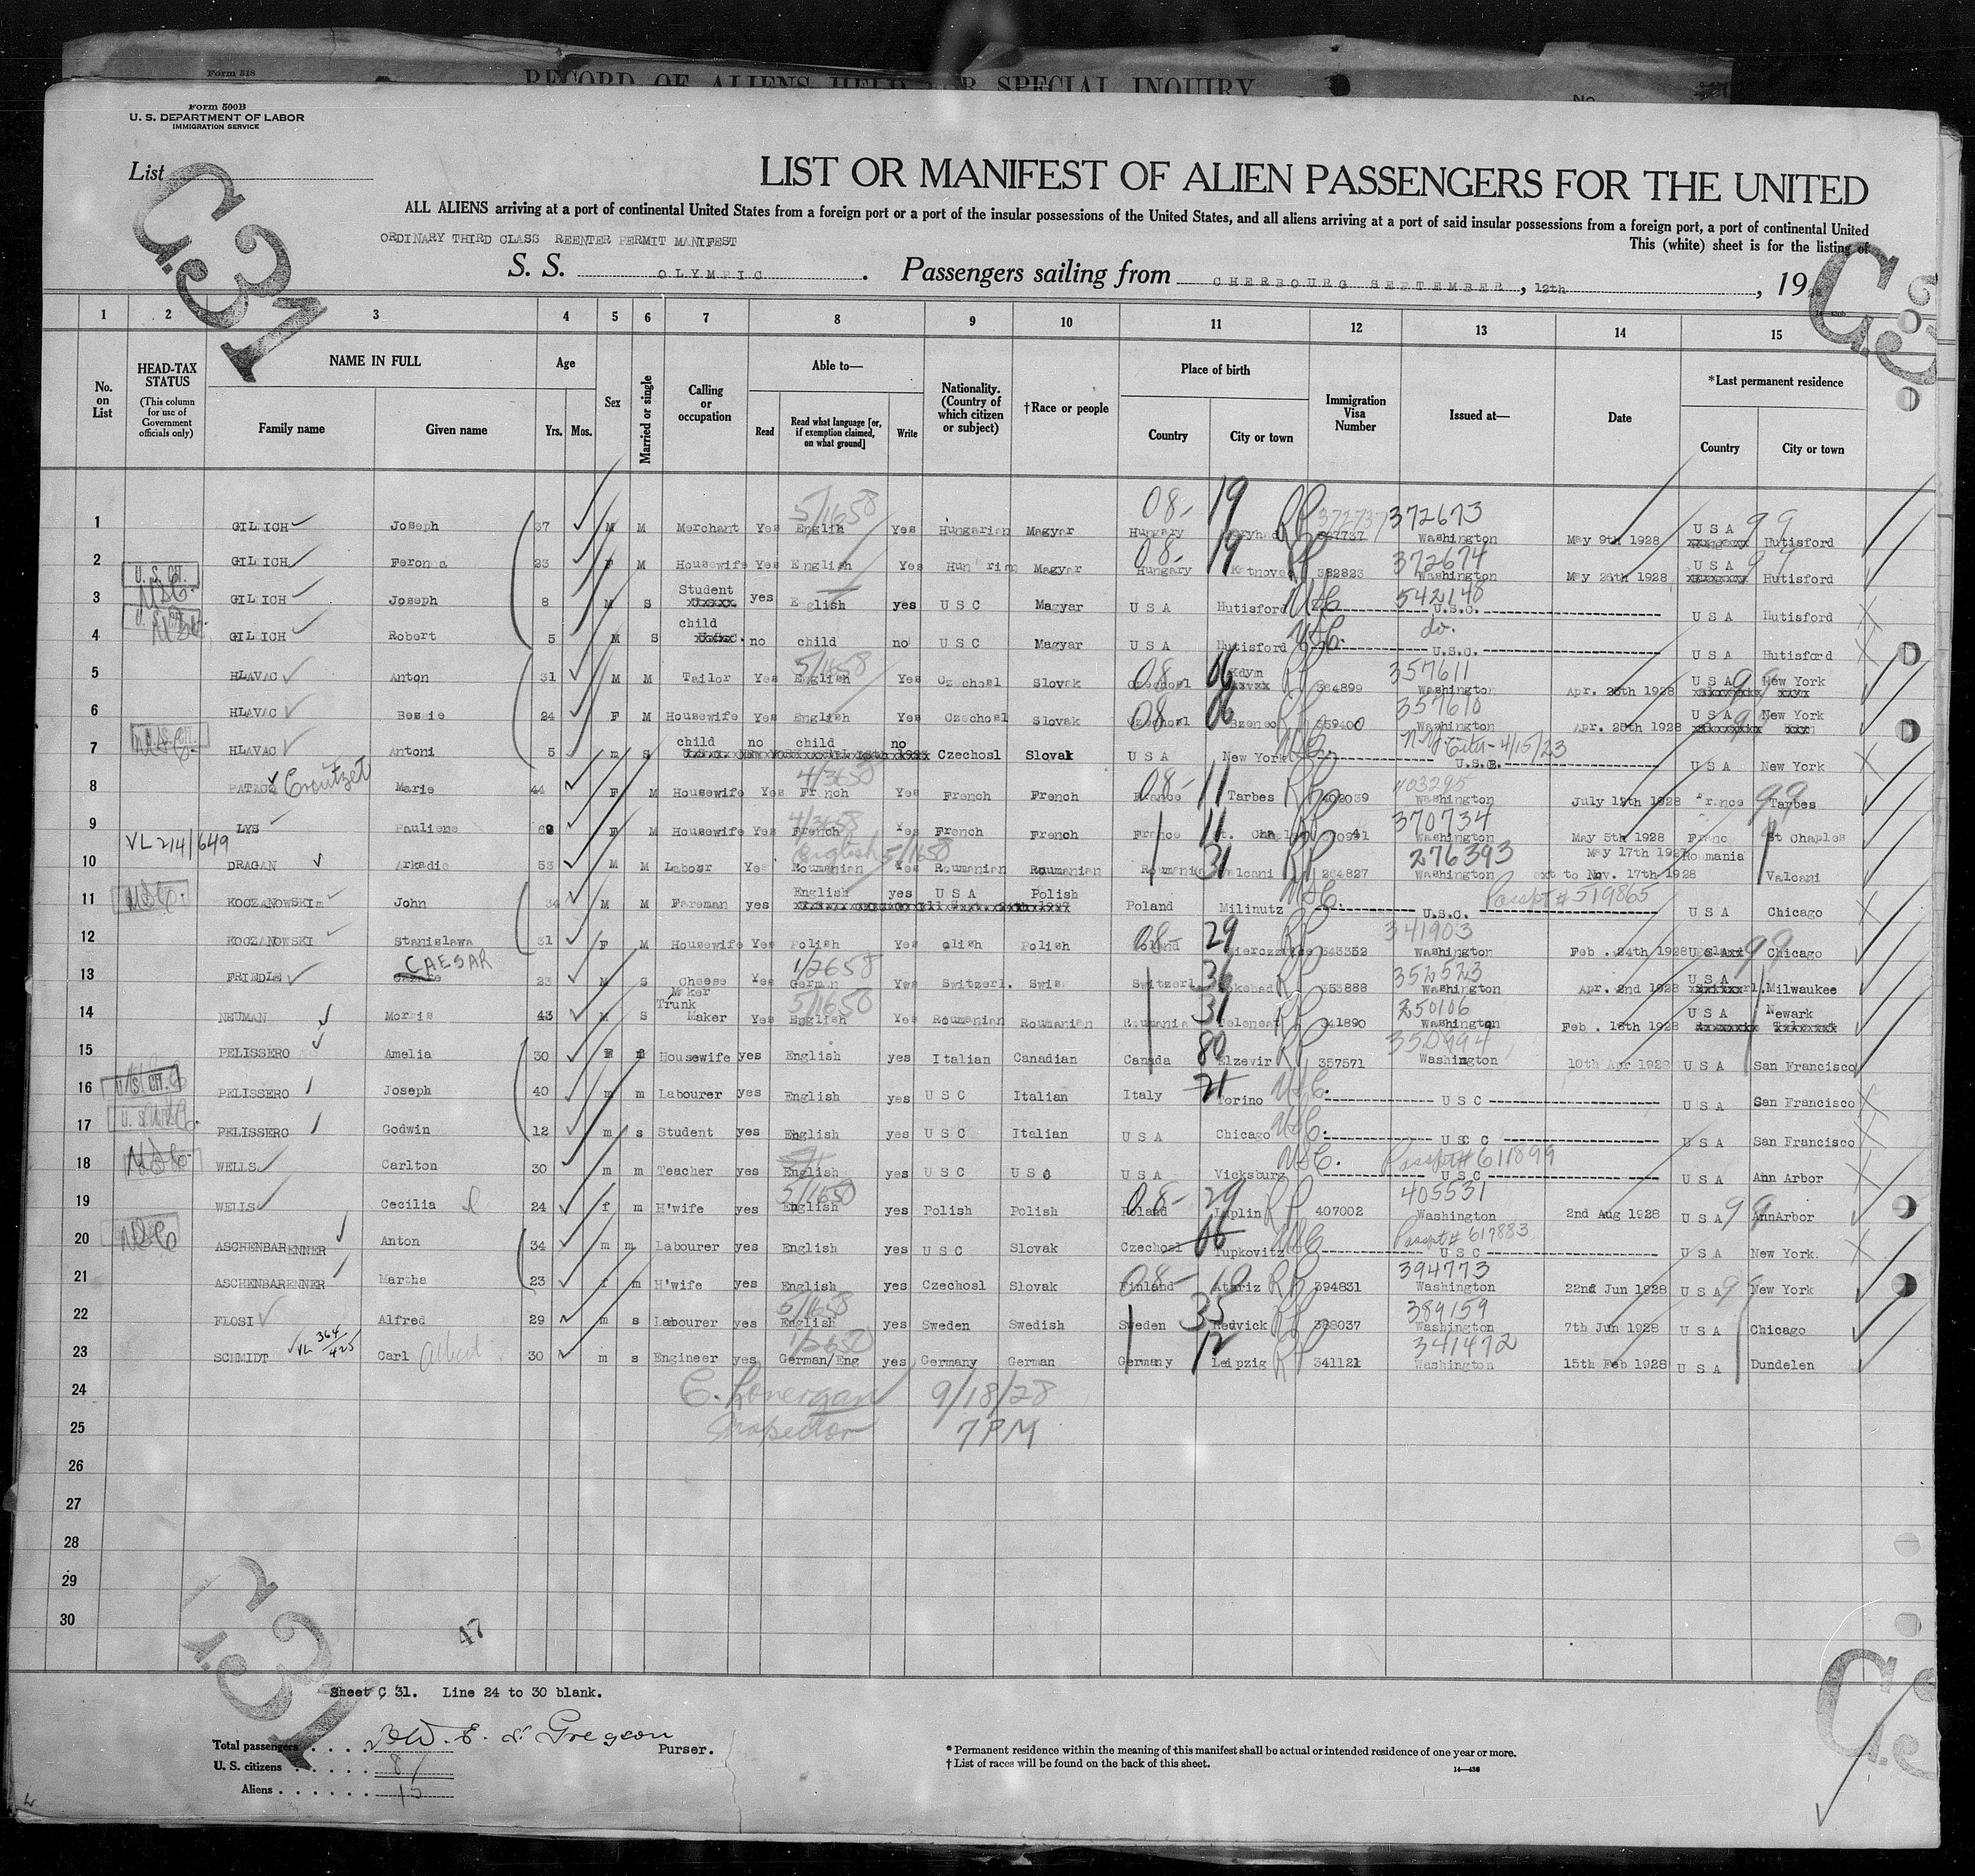 Form 518
RECORD OF ALIENS HELD FOR SPECIAL INQUIRY
No.
Form 500B
U. S. DEPARTMENT OF LABOR
IMMIGRATION SERVICE
List
C31
LIST OR MANIFEST OF ALIEN PASSENGERS FOR THE UNITED
ALL ALIENS arriving at a port of continental United States from a foreign port or a port of the insular possessions of the United States, and all aliens arriving at a port of said insular possessions from a foreign port, a port of continental United
ORDINARY THIRD CLASS REENTER PERMIT MANIFEST
This (white) sheet is for the listing of
S. S. OLYMPIC . Passengers sailing from CHERBOURG SEPTEMBER , 12th , 19
1 2 3 4 5 6 7 8 9 10 11 12 13 14 15
No. on List
HEAD-TAX STATUS (This column for use of Government officials only)
NAME IN FULL Family name Given name
Age Yrs. Mos.
Sex
Married or single
Calling or occupation
Able to— Read Read what language [or, if exemption claimed, on what ground] Write
Nationality. (Country of which citizen or subject)
†Race or people
Place of birth Country City or town
Immigration Visa Number
Issued at—
Date
*Last permanent residence Country City or town
1 GILICH Joseph 37 M M Merchant Yes English Yes Hungarian Magyar Hungary 372673 Washington May 9th 1928 U S A Hutisford
2 GILICH 23 F M Housewife Yes English Yes Magyar Hungary 382823 372674 Washington May 28th 1928 U S A Hutisford
3 U. S. CIT. GILICH Joseph 8 M S Student yes English yes U S C Magyar U S A Hutisford 542148 U.S.C. U S A Hutisford
4 GILICH Robert 5 M S child no child no U S C Magyar U S A Hutisford do. U.S.C. U S A Hutisford
5 HLAVAC Anton 31 M M Tailor Yes English Yes Czechosl Slovak Czechosl Kdyn 364899 357611 Washington Apr. 28th 1928 U S A New York
6 HLAVAC Bessie 24 F M Housewife Yes English Yes Czechosl Slovak Czechosl Bzenec 359400 357610 Washington Apr. 28th 1928 U S A New York
7 HLAVAC Antoni 5 m S child no child no Czechosl Slovak U S A New York N.Y. City - 4/15/23 U S A New York
8 Croutzet Marie 44 F M Housewife Yes French Yes French French France Tarbes 402039 403295 Washington July 12th 1928 France Tarbes
9 LYS Pauliene 69 F M Housewife Yes French Yes French French France 370734 Washington May 5th 1928 St Charles
VL 214/649
10 DRAGAN Arkadie 53 M M Labour Yes Roumanian Yes Roumanian Roumanian Roumania Valcani 264827 276393 Washington May 17th 1927 ext to Nov. 17th 1928 Roumania Valcani
11 KOCZANOWSKI John 34 M M Fareman yes English yes U S A Polish Poland Milinutz U.S.C. Passpt # 519865 U S A Chicago
12 KOCZANOWSKI Stanislawa 31 F M Housewife Yes Polish Yes Polish 343352 341903 Washington Feb. 24th 1928 Chicago
13 FRIEDLE CAESAR 23 M S Cheese Maker Yes German Yes Switzerl. Swis Switzerl 353888 352523 Washington Apr. 2nd 1928 U S A Milwaukee
14 NEUMAN Morris 43 M S Trunk Maker Yes English Yes Roumanian Roumanian Roumania 341890 250106 Washington Feb. 16th 1928 U S A Newark
15 PELISSERO Amelia 30 Housewife yes English yes Italian Canadian Canada Elzevir 357571 350994 Washington 10th Apr 1928 U S A San Francisco
16 U. S. CIT. PELISSERO Joseph 40 m m Labourer yes English yes U S C Italian Italy Torino U S C U S A San Francisco
17 PELISSERO Godwin 12 m s Student yes English yes U S C Italian U S A Chicago U S C U S A San Francisco
18 WELLS Carlton 30 m m Teacher yes English yes U S C U S C U S A Vicksburg Passpt # 611899 U S C U S A Ann Arbor
19 WELLS Cecilia 24 f m H'wife yes English yes Polish Polish Poland 407002 405531 Washington 2nd Aug 1928 U S A AnnArbor
20 ASCHENBARENNER Anton 34 m m Labourer yes English yes U S C Slovak Czechosl Tupkovitz Passpt # 617883 U S C U S A New York.
21 ASCHENBARENNER Martha 23 f m H'wife yes English yes Czechosl Slovak Finland 394831 394773 Washington 22nd Jun 1928 U S A New York
22 FLOSI Alfred 29 m s Labourer yes English yes Sweden Swedish Sweden Hedvick 388037 389159 Washington 7th Jun 1928 U S A Chicago
23 SCHMIDT VL 364/425 Carl Albert 30 m s Engineer yes German/Eng yes Germany German Germany Leipzig 341121 341472 Washington 15th Feb 1928 U S A Dundelen
24 9/18/28
25 Inspector 7 PM
26
27
28
29
30
47
Sheet C 31. Line 24 to 30 blank.
Total passengers Gregson Purser.
U. S. citizens 8
Aliens 15
* Permanent residence within the meaning of this manifest shall be actual or intended residence of one year or more.
† List of races will be found on the back of this sheet.
14—436